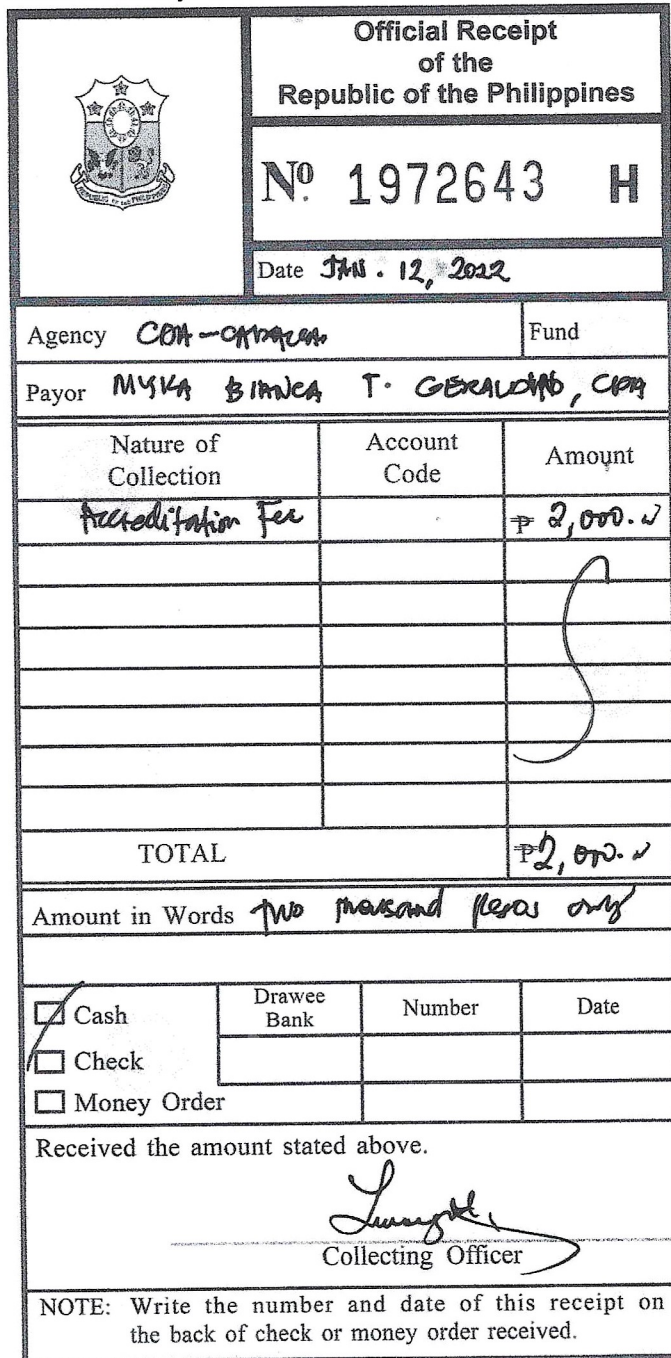 Official Receipt
of the
Republic of the Philippines
REPUBLIC OF THE PHILIPPINES
Nº 1972643 H
Date JAN. 12, 2022
Agency CDA-
Fund
Payor MYKA BIANCA T. GERALDINO, CPA
Nature of Collection
Account Code
Amount
Accreditation Fee ₱ 2,000.
TOTAL ₱2,000.
Amount in Words two thousand pesos only
Cash
Drawee Bank
Number
Date
Check
Money Order
Received the amount stated above.
Collecting Officer
NOTE: Write the number and date of this receipt on
the back of check or money order received.